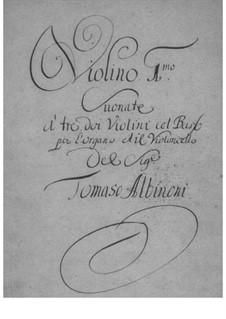 Violino 1.mo
Suonate
A' tre, doi Violini col Basso
per l'organo ed il Violoncello
Del Sig.r
Tomaso Albinoni